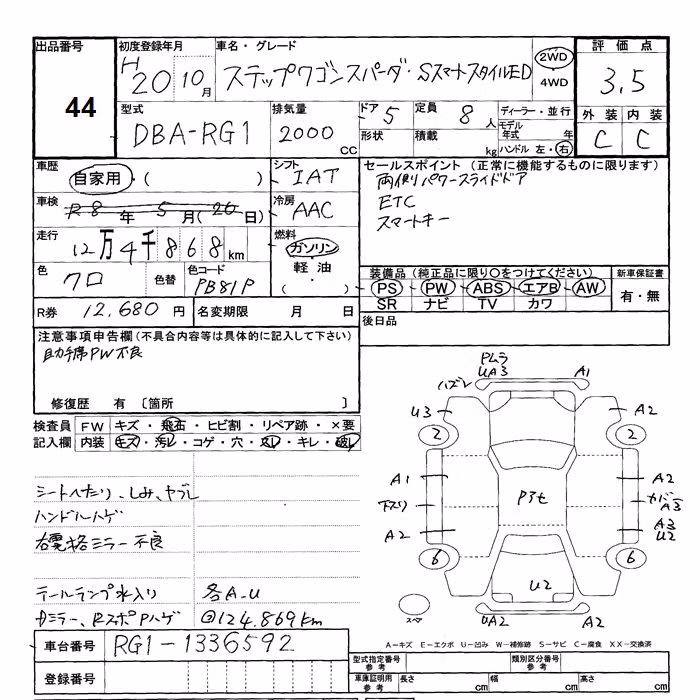 出品番号
44
初度登録年月
H20 10月
車名・グレード
ステップワゴンスパーダ・SスマートスタイルED
2WD
4WD
評価点
3.5
型式
DBA-RG1
排気量
2000 CC
ドア 5
形状
定員 8人
積載 kg
ディーラー・並行
モデル年式 年
ハンドル 左・右
外装 内装
C C
車歴
自家用・( )
シフト
IAT
セールスポイント (正常に機能するものに限ります)
両側パワースライドドア
ETC
スマートキー
車検
R8年 5月(20日)
冷房
AAC
走行
12万4千868km
燃料
ガソリン
軽油・
( )
色
クロ
色替
色コード
PB81P
装備品 (純正品に限り○をつけてください)
PS PW ABS エアB AW
SR ナビ TV カワ
新車保証書
有・無
R券 12,680円
名変期限 月 日
後日品
注意事項申告欄 (不具合内容等は具体的に記入して下さい)
助手席PW不良
修復歴 有 〔箇所 〕
検査員記入欄
FW キズ・飛石・ヒビ割・リペア跡・×要
内装 キズ・汚レ・コゲ・穴・スレ・キレ・破レ
シートへたり、しみ、ヤブレ
ハンドルハゲ
右電格ミラー不良
テールランプ水入り 各A-U
Dミラー、RスポPハゲ ◎124.869km
車台番号 RG1-1336592
登録番号
Pムラ
UA3 A1
ハズレ
U3 A2
2 2
A1 A2
下スリ Pアセ カバーA3
A2 A3
U2
6 6
U2
スペア UA2 A2
A-キズ E-エクボ U-凹み W-補修跡 S-サビ C-腐食 XX-交換済
型式指定番号 参考
類別区分番号 参考
車庫証明用 参考 長さ cm 幅 cm 高さ cm